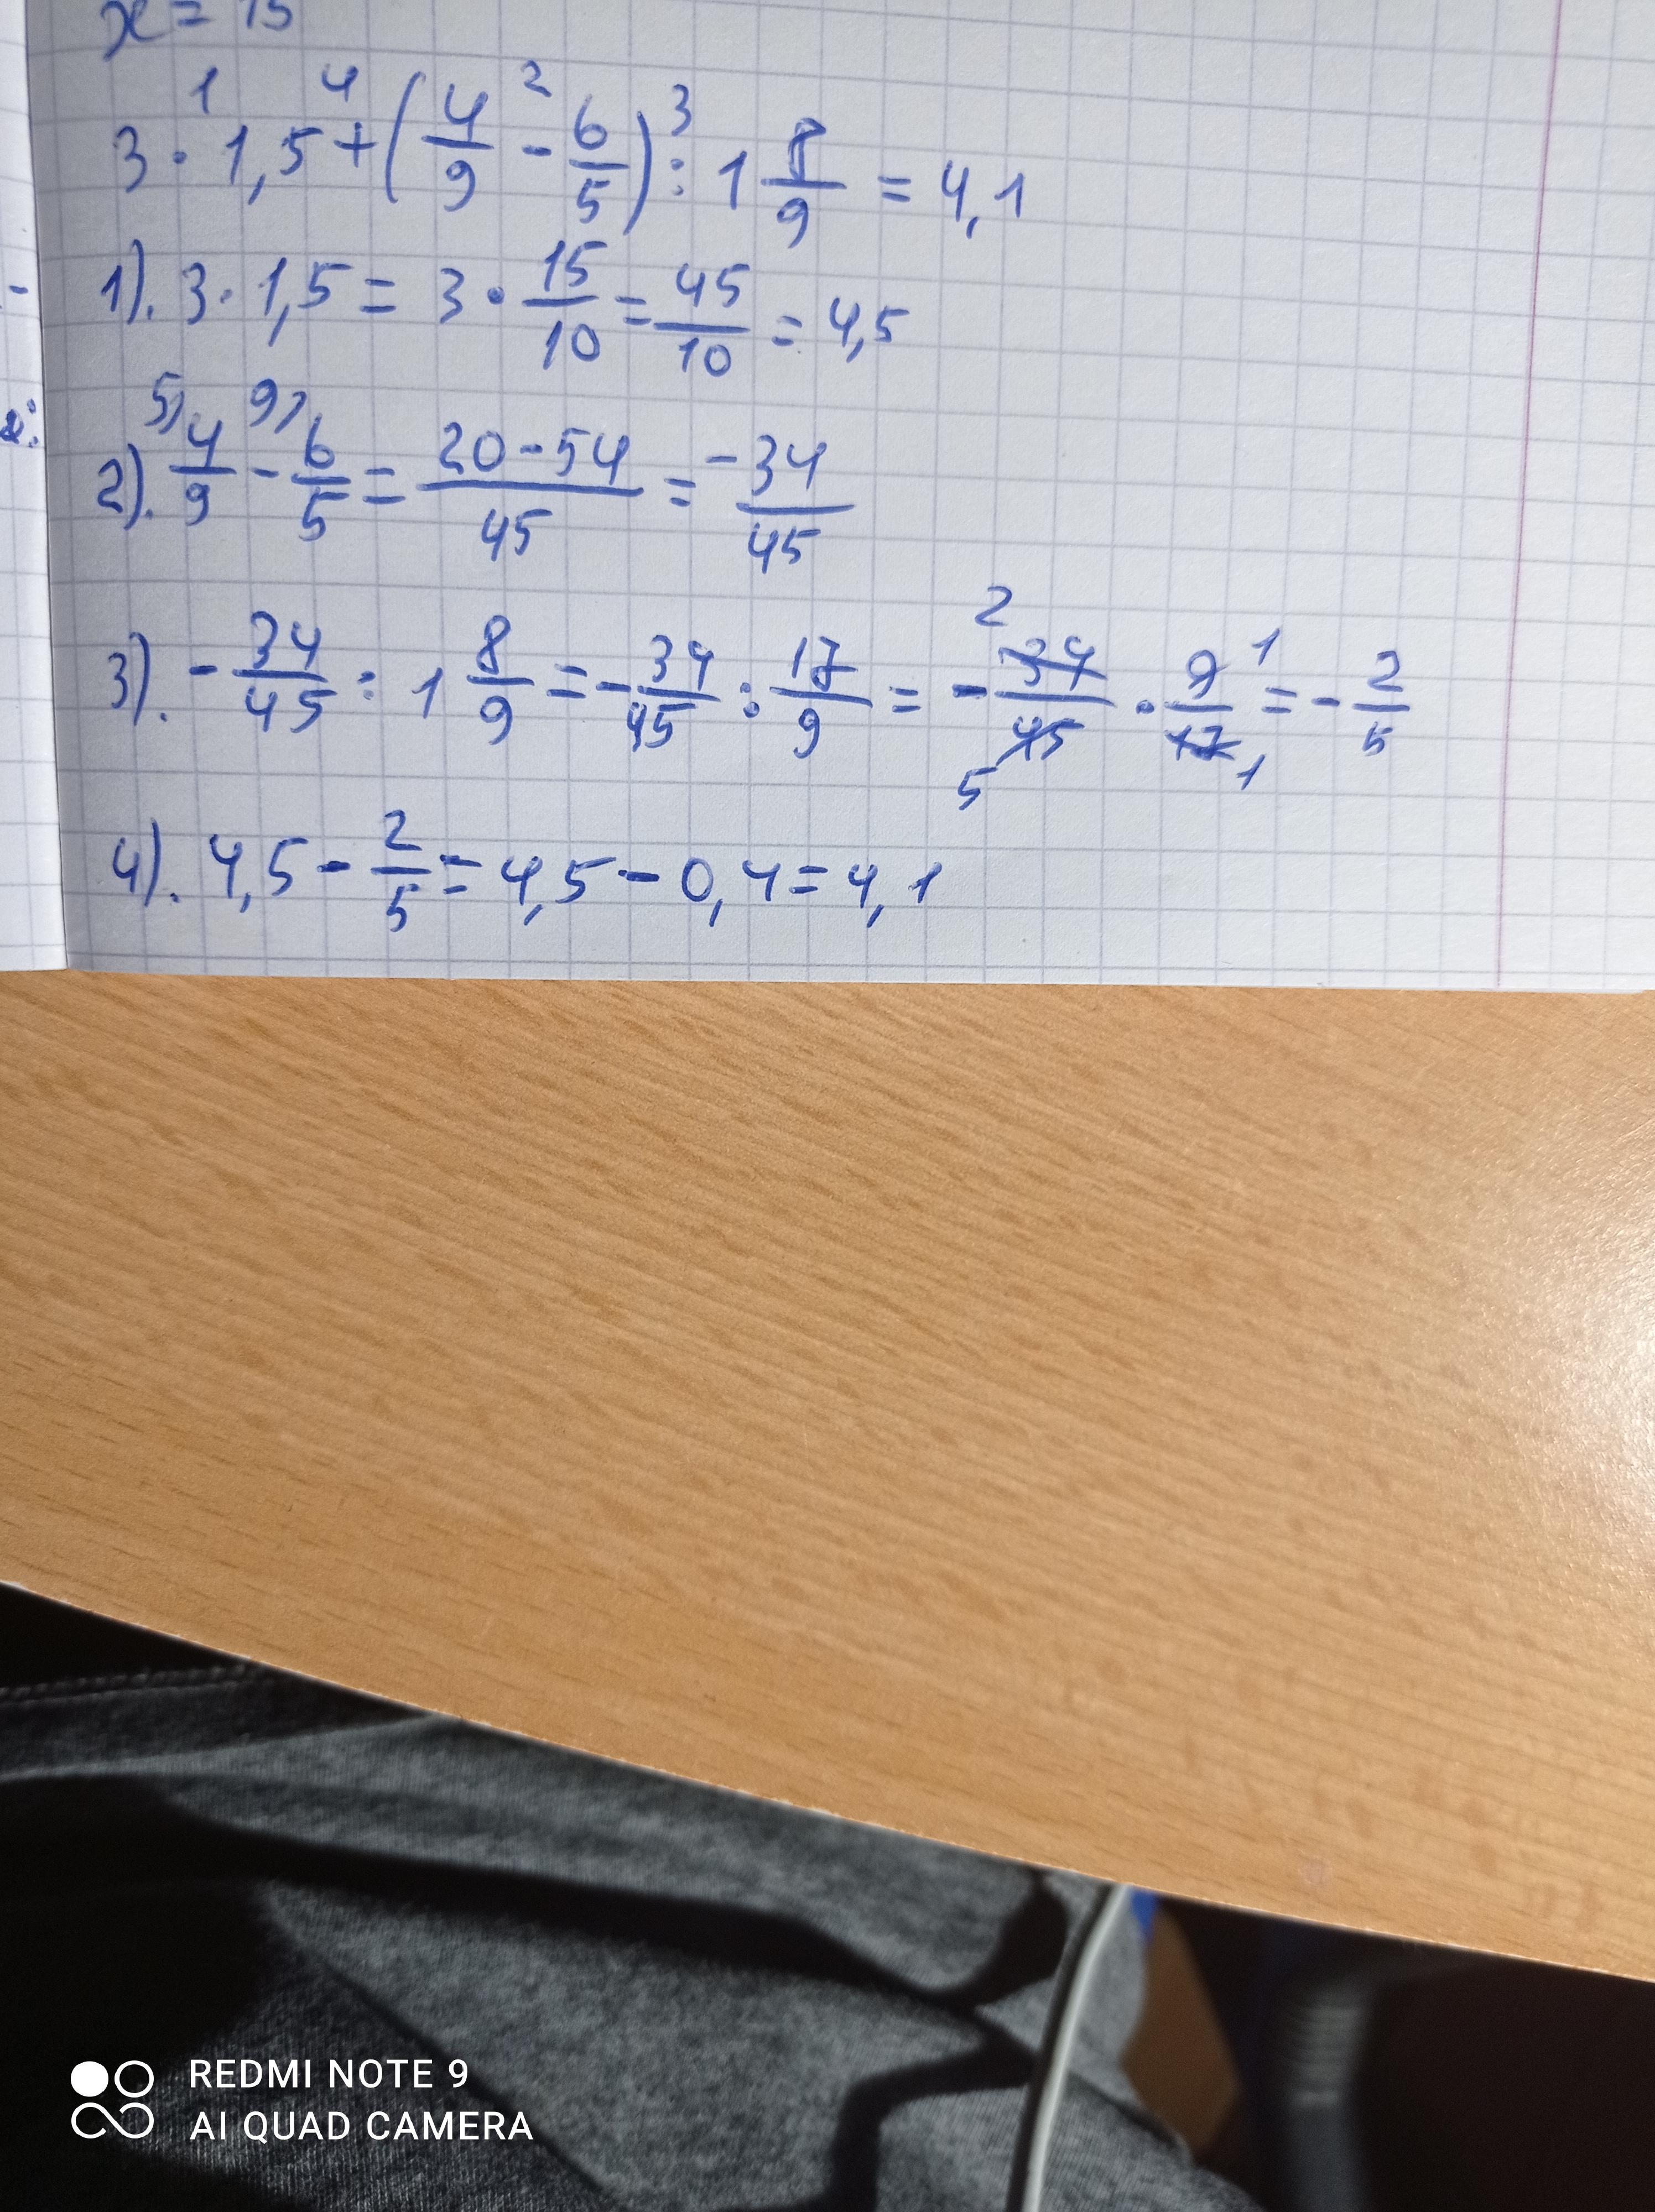 x = 15
3 · 1,5 + (4/9 - 6/5) : 1 8/9 = 4,1
1). 3 · 1,5 = 3 · 15/10 = 45/10 = 4,5
2). 4/9 - 6/5 = (20-54)/45 = -34/45
3). - 34/45 : 1 8/9 = - 34/45 : 17/9 = - 34/45 · 9/17 = - 2/5
4). 4,5 - 2/5 = 4,5 - 0,4 = 4,1
REDMI NOTE 9
AI QUAD CAMERA